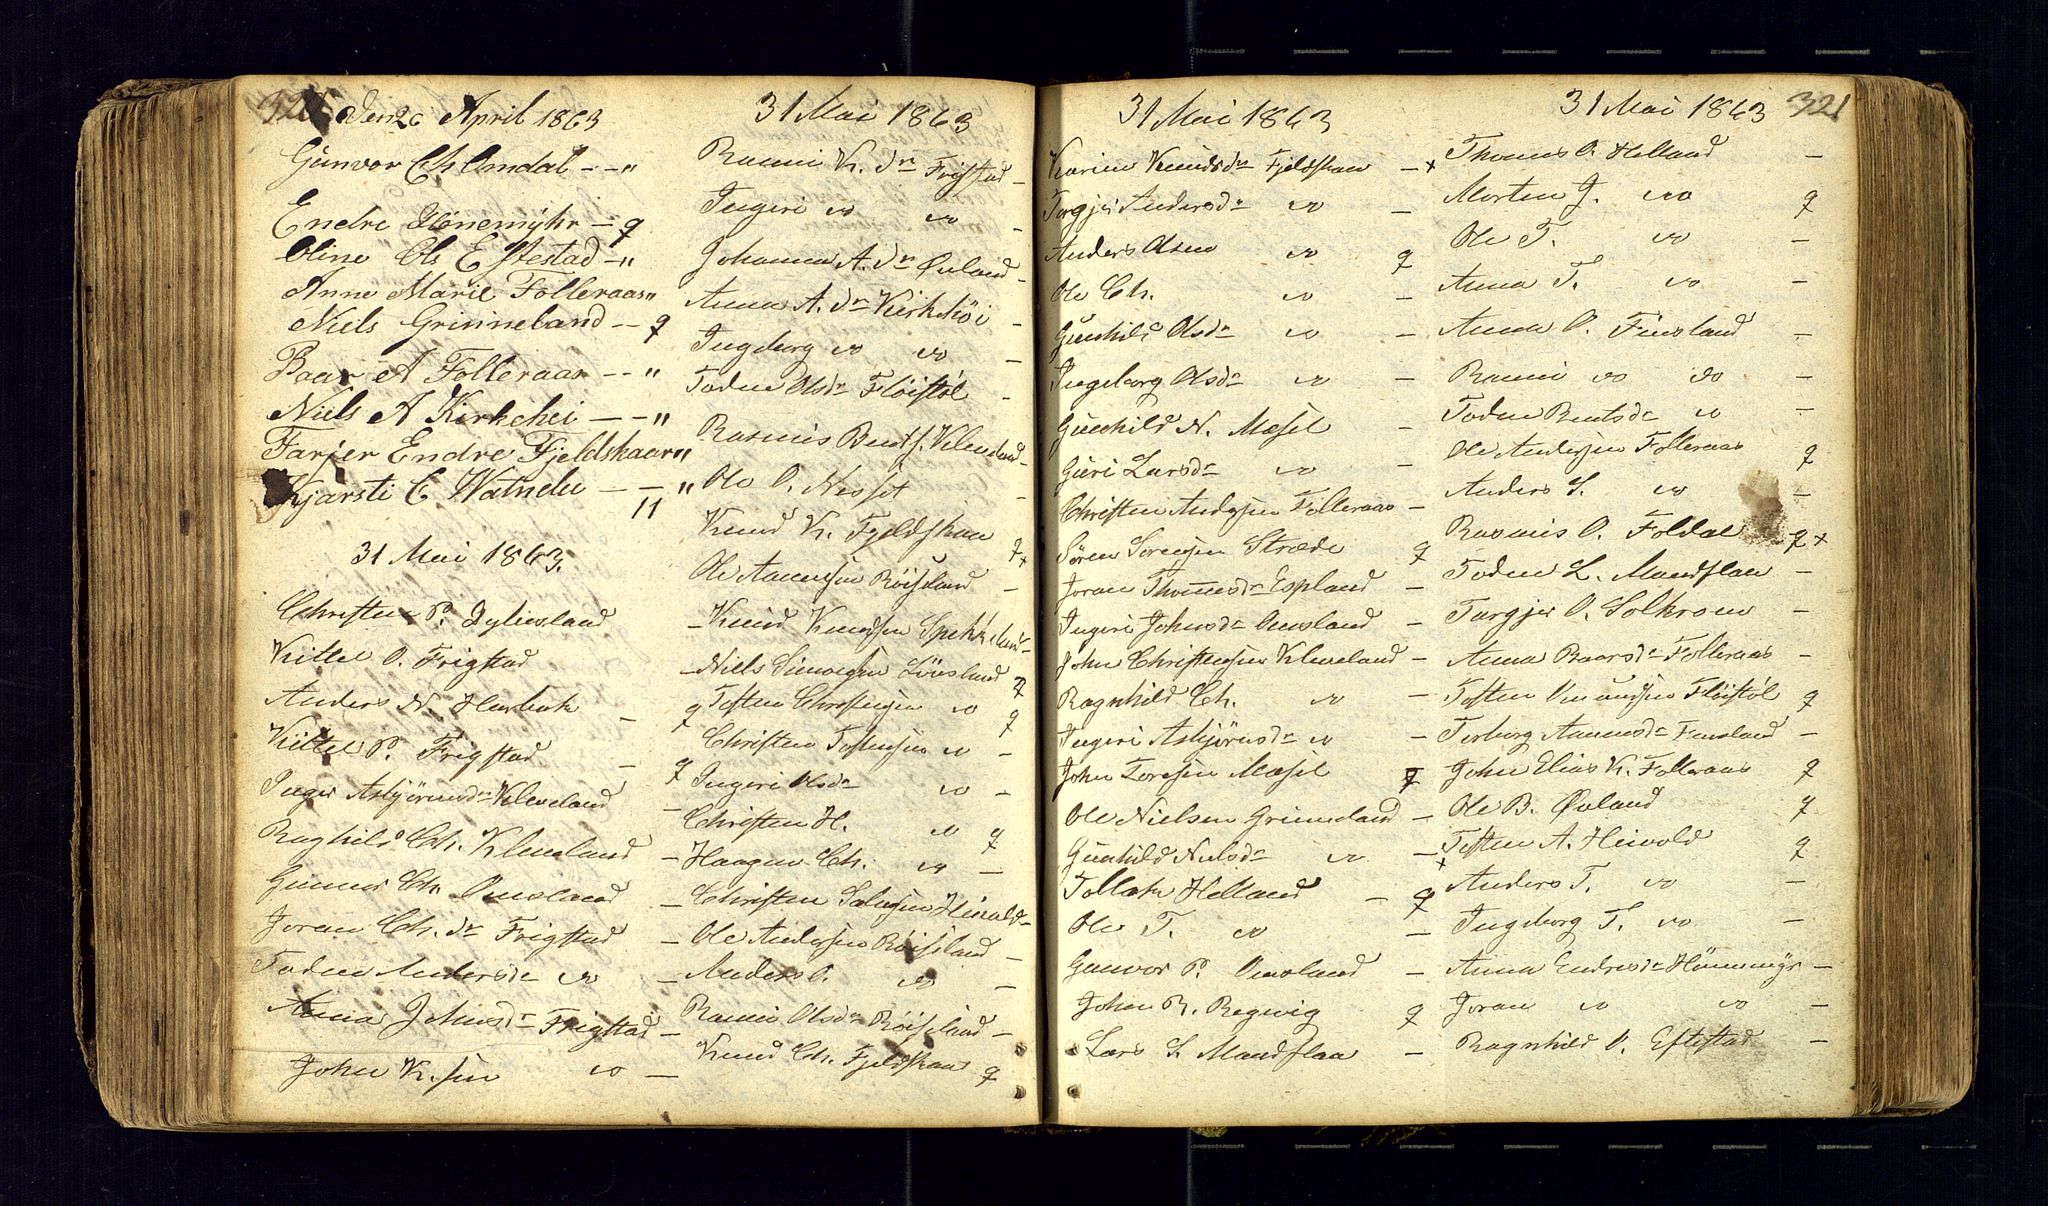 den 26 April 1863
Gunvor Ch Omdal - - "
Endre Hönemÿhr - q
Oline Ols Eftestad - "
Anne Marie Folleraas "
Niels Grinneland - - q
Baar A Folleraas - - "
Niels A Kirkehei - - "
Tarjer Endre Fjeldskaar "
Kjersti C Watnelie - - "
11
31 Mai 1863.
Christen P. Dylinsland
Kittel O. Frigstad
Anders N. Hørbak -
Kittel P. Frigstad -
Inger Asbjörnsdr Kleveland
Raghild Ch. Kleveland
Gunner Ch. Omsland
Joran Ch. dr Frigstad
Toden Andersdr do
Anna Johnsdr Frigstad
John K. sen do
31 Mai 1863
Ranni K. dr Frigstad -
Ingeri do do -
Johanna A. dr Øvland -
Anna A. dr Kirkehöi -
Ingeborg do do -
Toden Olsdr Fløistøl -
Rasmus Bents. Kleveland -
Ole O. Nesset -
Knud K. Fjeldskaar q +
Ole Aanensen Röiseland -
- Knud Knudsen
- Niels Simonsen Lövsland q
q Tosten Christensen do q
Christen Tostensen do -
q Ingeri Olsdr do -
- Christen H. do q
- Haagen Ch. do -
- Christen Salvesen Heivold -
- Ole Andersen Röiseland -
- Anders O. do -
- Ranni Olsdr Röiseland -
- Knud Ch. Fjeldskaar q
31 Mai 1863
Karine Knudsdr Fjeldskaar - +
Torgjer Andersdr do -
Anders Olsen do q
Ole Ch. do -
Gunhild Olsdr do -
Ingeborg Olsdr do -
Gunhild N. Mæsel -
Guri Larsdr do -
Christen Andersen Folleraas -
Sören Sörensen Stræde q
Joran Thomasdr Espland -
Ingeri Johnsdr Omsland -
John Christensen Kleveland -
Ragnhild Ch. do -
Ingeri Asbjörnsdr do -
John Toresen Mæsel q
Ole Nielsen Grinneland -
Gunhild Nielsdr do - +
Tollak Helland - q
Ole T. do -
Gunvor P. Omsland -
John R. Regevig q
Lars L Mandflaa -
31 Mai 1863 321
Thomas O. Helland -
Morten J. do q
Ole T. do -
Anna T. do -
Anna O. Finsland -
Ranni do do -
Toden Bentsdr do -
Ole Andersen Folleraas q
Anders S. do -
Rasmus O. Foldal q +
Toden L. Mandflaa -
Torgjer O. Solkrom -
Anna Baarsdr Folleraas -
Tosten Omundsen Fløistøl q
Torborg Aanensdr Finsland -
John Elias K. Folleraas q
Ole B. Øvland q
Tosten A. Heivold q
Anders T. do -
Ingeborg T. do -
Anna Endresdr Hönnemÿr -
Joran do do -
Ragnhild O. Eftestad -